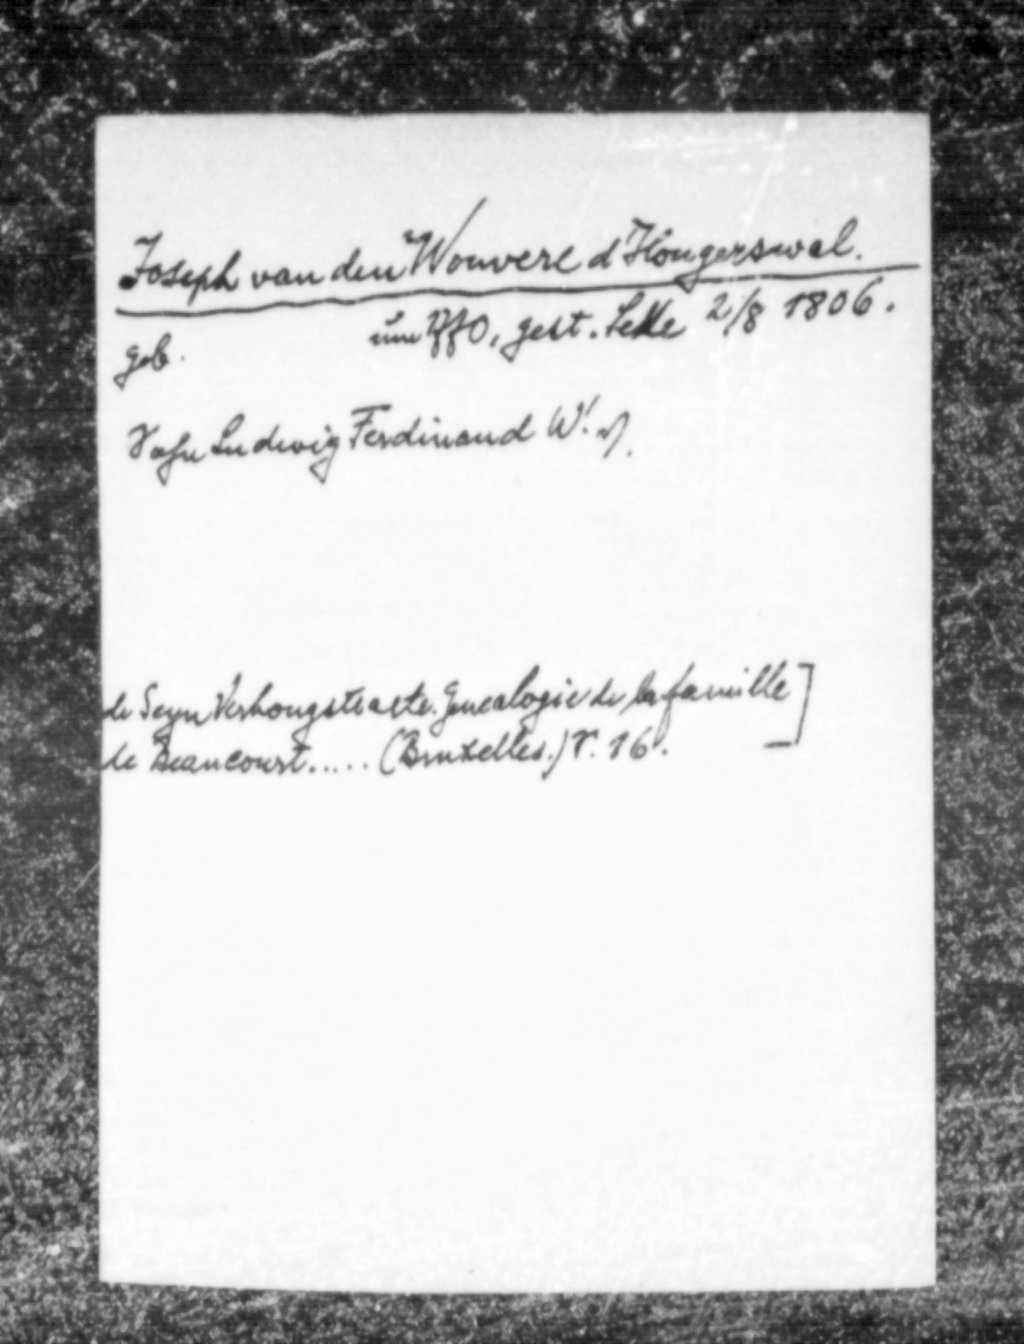 Joseph van den Wouvere d'Höngerswal.
geb. um gest. Selle 2/8 1806.
Sohn Ludwig Ferdinand W!
de Seyn Verhougstraete. Genealogie de la famille
de Beaucourt..... (Bruxelles.) S. 16.